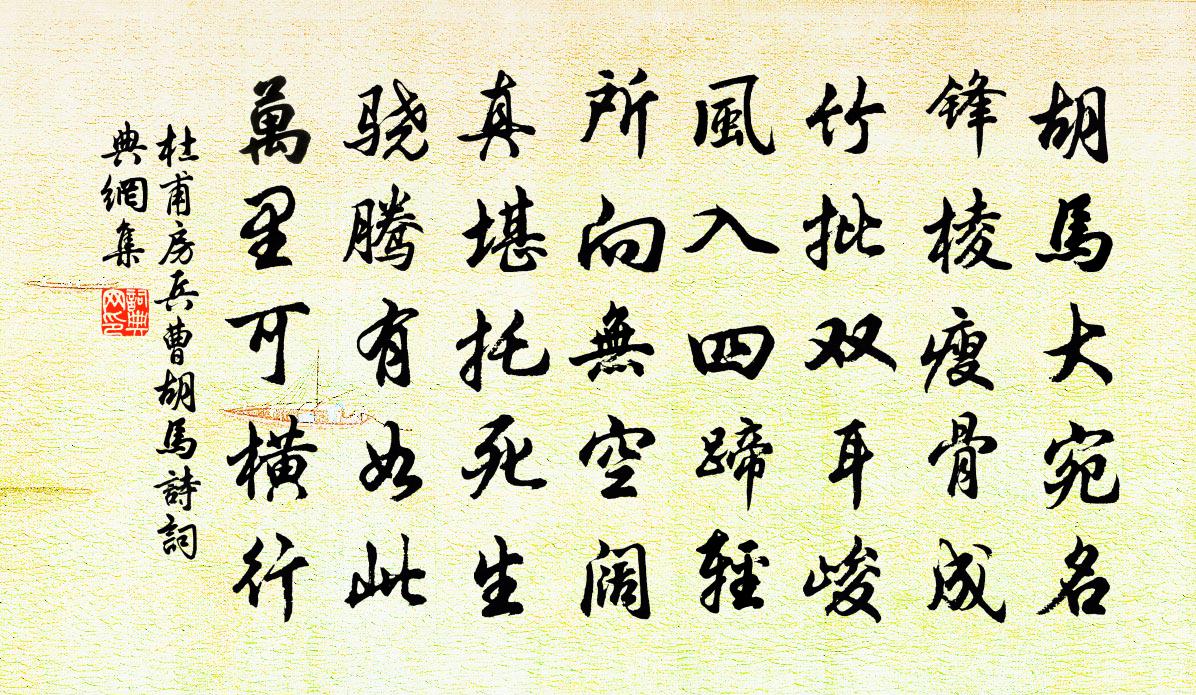 胡馬大宛名
锋棱瘦骨成
竹批双耳峻
風入四蹄輕
所向無空阔
真堪托死生
骁腾有如此
萬里可橫行
杜甫房兵曹胡馬詩詞
典網集
詞典网印